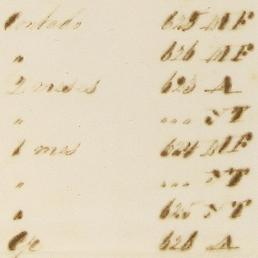 Contado 625 M F
" 626 M F
2 meses 623 A
" ... N T
1 mes 624 M F
" ... N T
" 625 N T
626 A